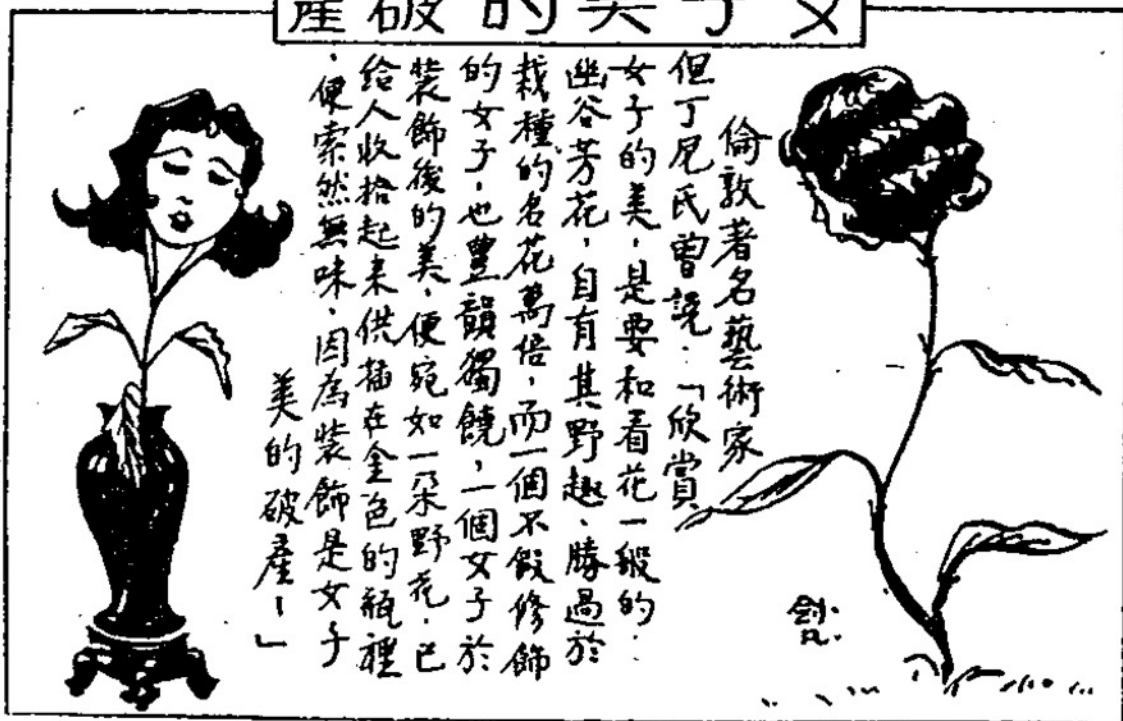 女子美的破產
倫敦著名藝術家
但丁尼氏曾說：「欣賞
女子的美，是要和看花一般的．
幽谷芳花，自有其野趣、勝過於
栽種的名花萬倍，而一個不假修飾
的女子，也豐韻獨饒，一個女子於
裝飾後的美，便宛如一朶野花，已
給人收拾起来供插在金色的瓶裡
，便索然無味，因為裝飾是女子
美的破產！」